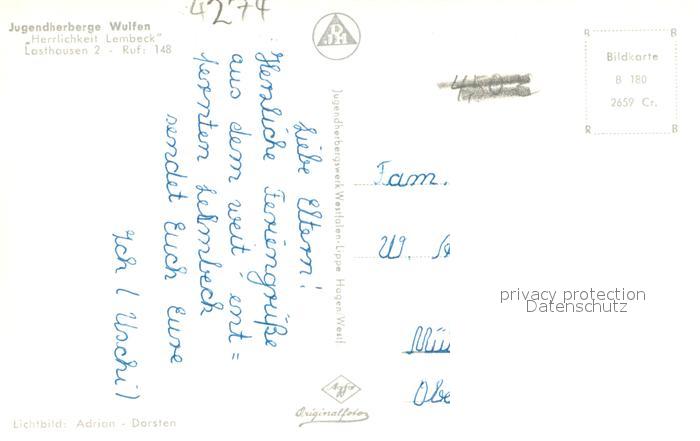 4274
Jugendherberge Wulfen
„Herrlichkeit Lembeck"
Lasthausen 2 - Ruf: 148
Liebe Eltern!
Herzliche Feriengrüße
aus dem weit ent=
fernten Lembeck
sendet Euch Eure
Ich (Uschi)
Lichtbild: Adrian - Dorsten
Jugendherbergswerk Westfalen-Lippe Hagen-Westf
Agfa
Originalfoto
Bildkarte
B 180
2659 Cr.
R R
R B
Fam.
W.
Mül
Obe
privacy protection
Datenschutz